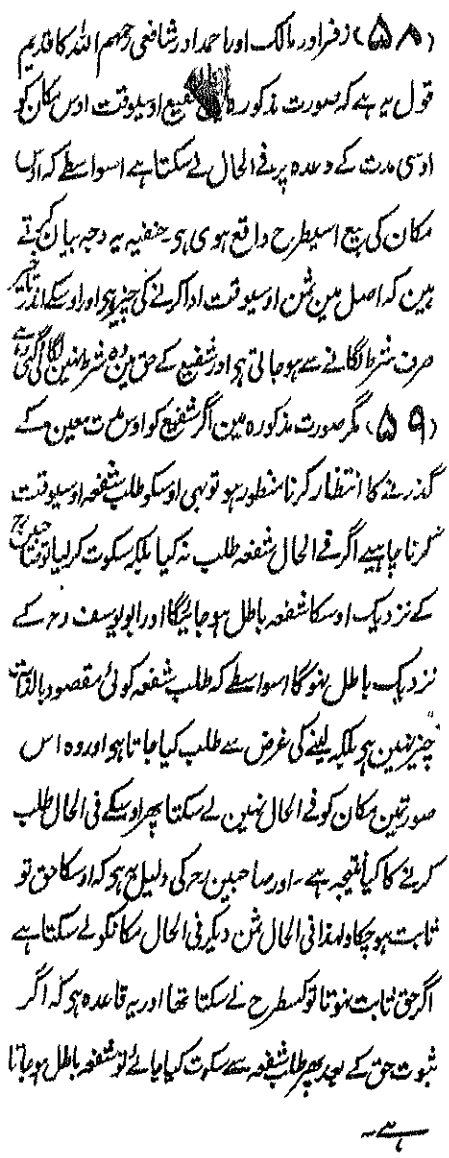 (۵۸) زفر اور مالک اور احمد اور شافعی رحمہم اللہ کا قدیم
قول یہ ہے کہ صورت مذکورہ شفیع اوسیوقت اوس مکان کو
اوسی مدت کے وعدہ پر فے الحال لے سکتا ہے اسواسطے کہ اوس
مکان کی بیع اسیطرح واقع ہوی ہی۔ حنفیہ یہ وجہ بیان کرتے
ہین کہ اصل مین ثمن اوسیوقت ادا کرنے کی چیز ہی اور اوسکے اندر تاخیر
صرف شرط لگانے سے ہو جاتی ہی اور شفیع کے حق مین وہ شرط نہین لگائی گئی ہے
(۵۹) مگر صورت مذکورہ مین اگر شفیع کو اوس مدت معین کے
گذرنے کا انتظار کرنا منظور ہو تو بھی اوسکو طلب شفعہ اوسیوقت
کرنا چاہیے اگر فے الحال شفعہ طلب نہ کیا بلکہ سکوت کر لیا تو صاحبین رح
کے نزدیک اوسکا شفعہ باطل ہو جائیگا اور ابو یوسف رح کے
نزدیک باطل نہوگا اسواسطے کہ طلب شفعہ کوئی مقصود بالذات
چیز نہین ہی بلکہ لینے کی غرض سے طلب کیا جاتا ہی اور وہ اس
صورتمین مکان کو فے الحال نہین لے سکتا پھر اوسکے فی الحال طلب
کرنے کا کیا نتیجہ ہے۔ اور صاحبین رح کی دلیل یہ ہی کہ اوسکا حق تو
ثابت ہو چکا ولہذا فی الحال ثمن دیکر فی الحال مکانکو لے سکتا ہے
اگر حق ثابت نہوتا تو کسطرح لے سکتا تھا اور یہ قاعدہ ہی کہ اگر
ثبوت حق کے بعد پھر طلب شفعہ سے سکوت کیا جائے تو شفعہ باطل ہو جاتا
ہے۔